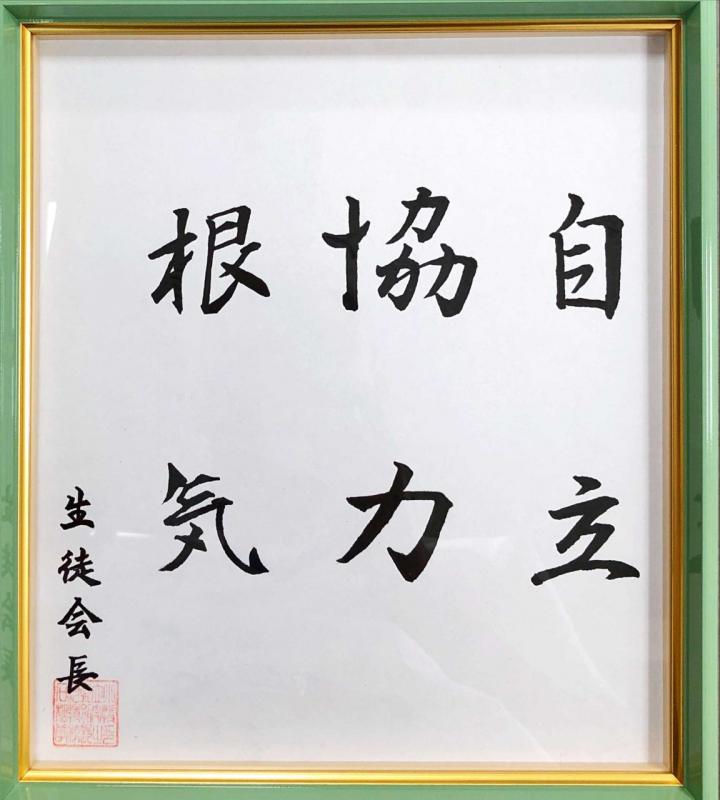 自立
協力
根気
生徒会長